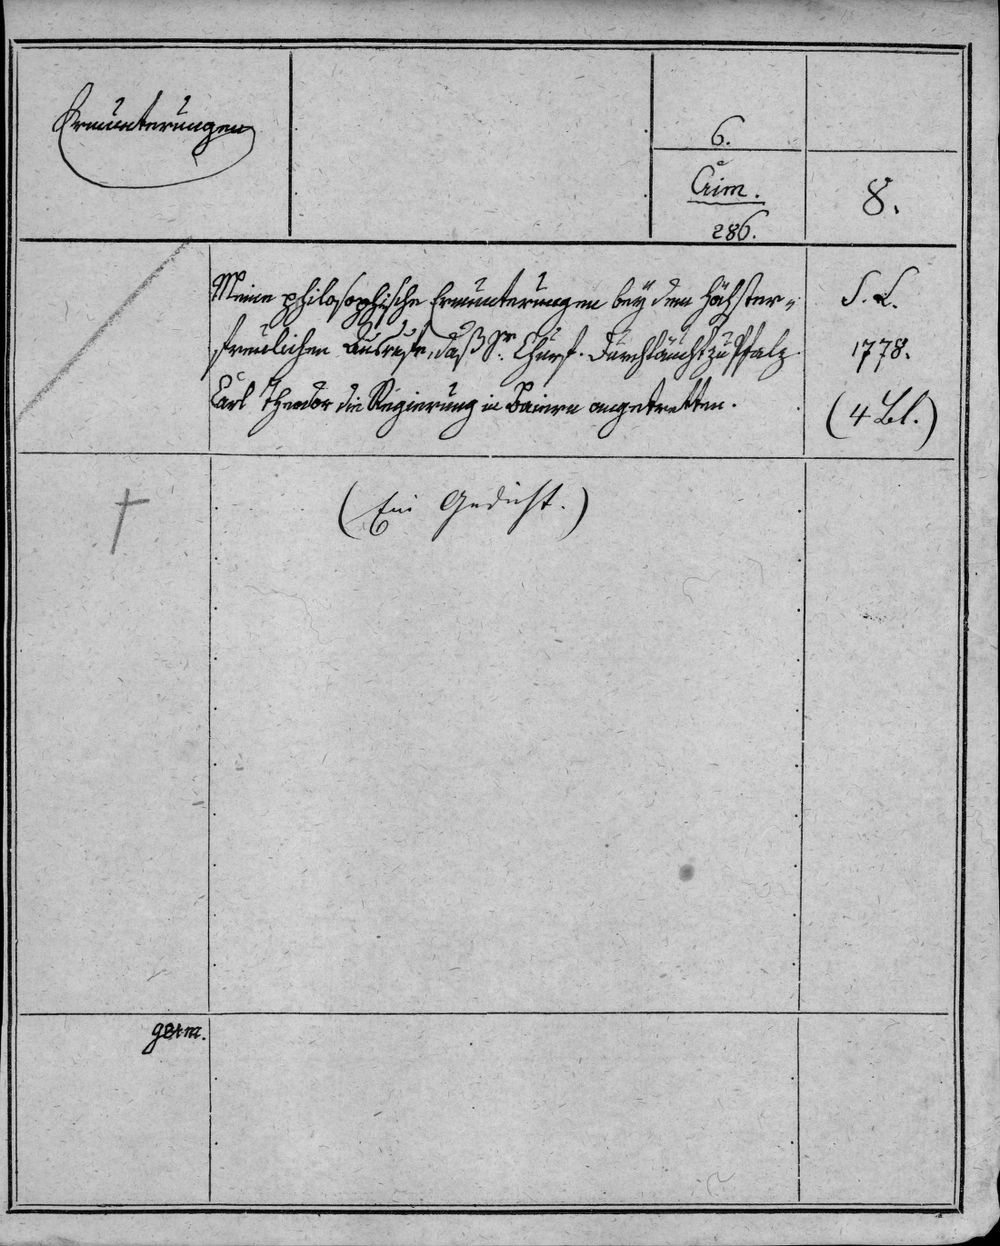 Ermunterungen
6.
Cim.
286.
8.
Meine philosophische Ermunterungen bey dem höchster-
freulichen daß Sr. Churf. Durchläucht zu Pfalz
Carl Theodor die Regierung in Baiern angetretten.
S. L.
1778.
(4 Bl.)
(Ein Gedicht.)
germ.